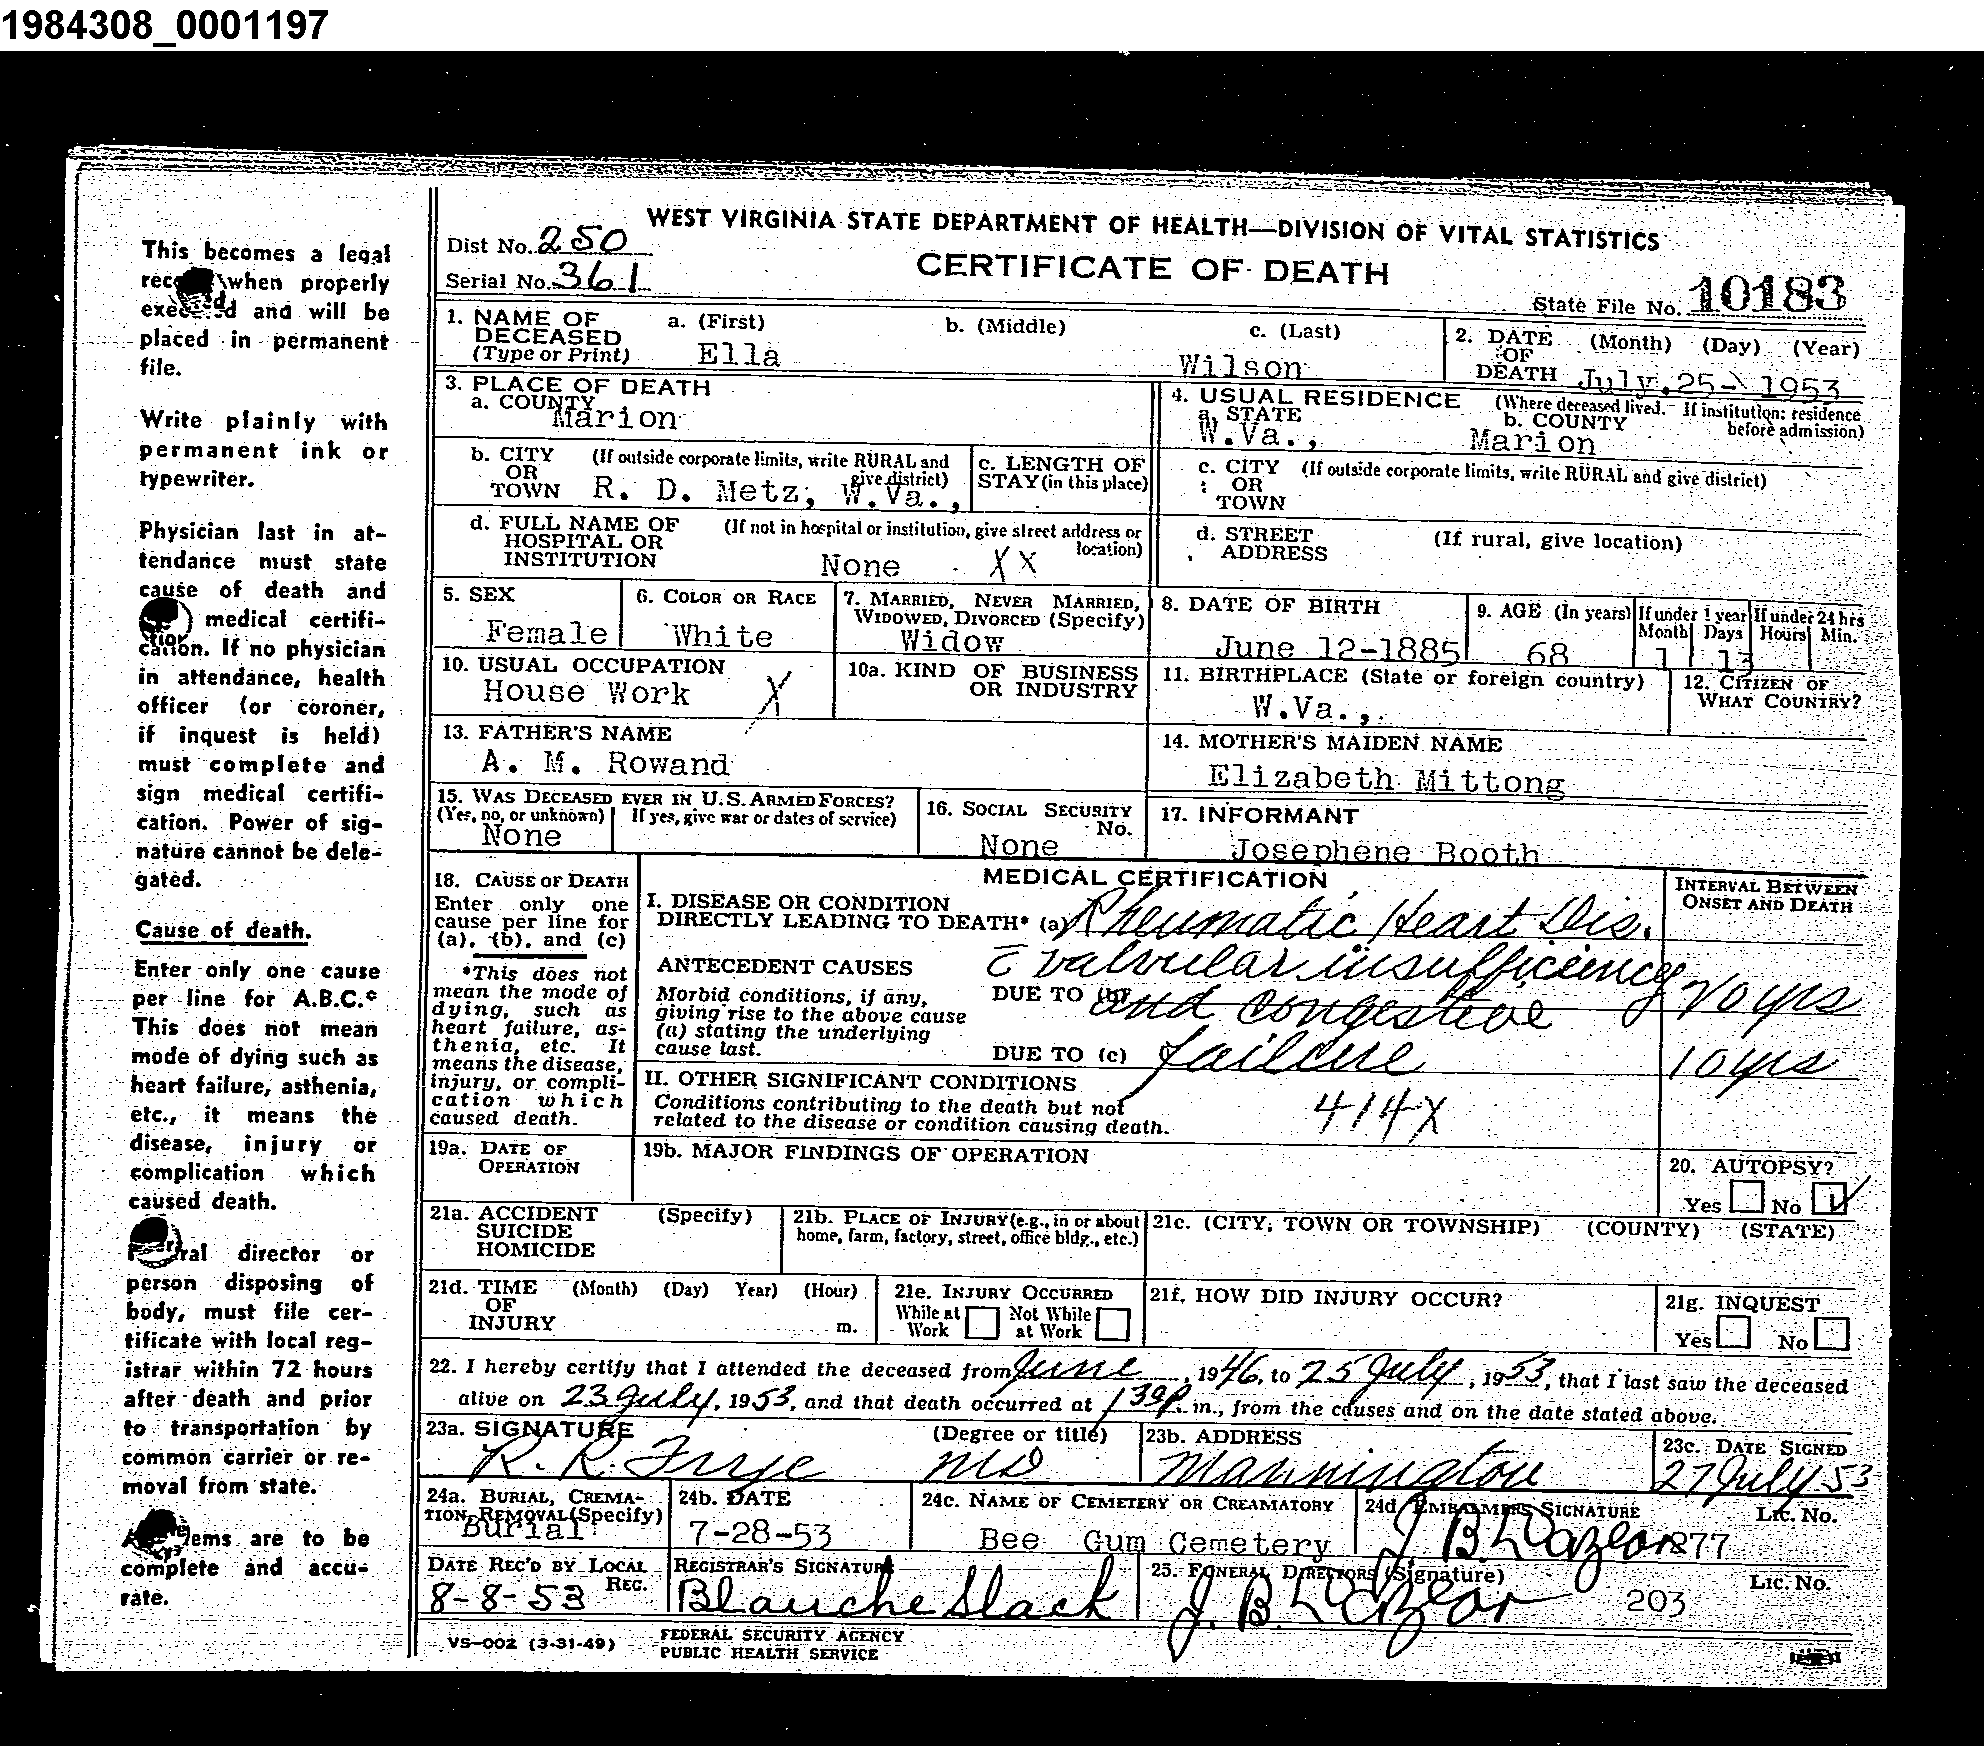 1984308_0001197
WEST VIRGINIA STATE DEPARTMENT OF HEALTH—DIVISION OF VITAL STATISTICS
Dist No. 250
CERTIFICATE OF DEATH
Serial No. 361
State File No. 10183
1. NAME OF DECEASED (Type or Print) a. (First) b. (Middle) c. (Last)
Ella Wilson
2. DATE OF DEATH (Month) (Day) (Year)
July. 25- 1953
3. PLACE OF DEATH
a. COUNTY
Marion
4. USUAL RESIDENCE (Where deceased lived. If institution: residence before admission)
a. STATE b. COUNTY
W.Va., Marion
b. CITY OR TOWN (If outside corporate limits, write RURAL and give district)
R. D. Metz, W.Va.,
c. LENGTH OF STAY (in this place)
c. CITY OR TOWN (If outside corporate limits, write RURAL and give district)
d. FULL NAME OF HOSPITAL OR INSTITUTION (If not in hospital or institution, give street address or location)
None XX
d. STREET ADDRESS (If rural, give location)
5. SEX
Female
6. COLOR OR RACE
White
7. MARRIED, NEVER MARRIED, WIDOWED, DIVORCED (Specify)
Widow
8. DATE OF BIRTH
June 12-1885
9. AGE (In years) If under 1 year If under 24 hrs
Month Days Hours Min.
68 1 13
10. USUAL OCCUPATION
House Work X
10a. KIND OF BUSINESS OR INDUSTRY
11. BIRTHPLACE (State or foreign country)
W.Va.,
12. CITIZEN OF WHAT COUNTRY?
13. FATHER'S NAME
A. M. Rowand
14. MOTHER'S MAIDEN NAME
Elizabeth Mittong
15. WAS DECEASED EVER IN U.S. ARMED FORCES?
(Yes, no, or unknown) If yes, give war or dates of service)
None
16. SOCIAL SECURITY No.
None
17. INFORMANT
Josephene Booth
18. CAUSE OF DEATH
Enter only one cause per line for (a), (b), and (c)
*This does not mean the mode of dying, such as heart failure, asthenia, etc. It means the disease, injury, or complication which caused death.
MEDICAL CERTIFICATION
INTERVAL BETWEEN ONSET AND DEATH
I. DISEASE OR CONDITION
DIRECTLY LEADING TO DEATH* (a) Rheumatic Heart Dis.
ANTECEDENT CAUSES c̄ valvular insufficiency
Morbid conditions, if any, giving rise to the above cause (a) stating the underlying cause last.
DUE TO (b) and congestive 20 yrs
DUE TO (c) failure 10 yrs
II. OTHER SIGNIFICANT CONDITIONS
Conditions contributing to the death but not related to the disease or condition causing death.
414X
19a. DATE OF OPERATION
19b. MAJOR FINDINGS OF OPERATION
20. AUTOPSY?
Yes No ✓
21a. ACCIDENT SUICIDE HOMICIDE (Specify)
21b. PLACE OF INJURY (e.g., in or about home, farm, factory, street, office bldg., etc.)
21c. (CITY, TOWN OR TOWNSHIP) (COUNTY) (STATE)
21d. TIME OF INJURY (Month) (Day) Year) (Hour) m.
21e. INJURY OCCURRED
While at Work Not While at Work
21f. HOW DID INJURY OCCUR?
21g. INQUEST
Yes No
22. I hereby certify that I attended the deceased from June, 1946, to 25 July, 1953, that I last saw the deceased
alive on 23 July, 1953, and that death occurred at 1 39 P. m., from the causes and on the date stated above.
23a. SIGNATURE (Degree or title)
R. R. Frye MD
23b. ADDRESS
Mannington
23c. DATE SIGNED
27 July 53
24a. BURIAL, CREMATION, REMOVAL (Specify)
Burial
24b. DATE
7-28-53
24c. NAME OF CEMETERY OR CREAMATORY
Bee Gum Cemetery
24d. EMBALMERS SIGNATURE Lic. No.
J. B. LaZear 277
DATE REC'D BY LOCAL REG.
8-8-53
REGISTRAR'S SIGNATURE
Blanche Slack
25. FUNERAL DIRECTORS (Signature) Lic. No.
J. B. LaZear 203
VS-002 (3-31-49)
FEDERAL SECURITY AGENCY
PUBLIC HEALTH SERVICE
This becomes a legal
when properly
and will be
placed in permanent
file.
Write plainly with
permanent ink or
typewriter.
Physician last in at-
tendance must state
cause of death and
medical certifi-
cation. If no physician
in attendance, health
officer (or coroner,
if inquest is held)
must complete and
sign medical certifi-
cation. Power of sig-
nature cannot be dele-
gated.
Cause of death.
Enter only one cause
per line for A.B.C.*
This does not mean
mode of dying such as
heart failure, asthenia,
etc., it means the
disease, injury or
complication which
caused death.
director or
person disposing of
body, must file cer-
tificate with local reg-
istrar within 72 hours
after death and prior
to transportation by
common carrier or re-
moval from state.
are to be
complete and accu-
rate.